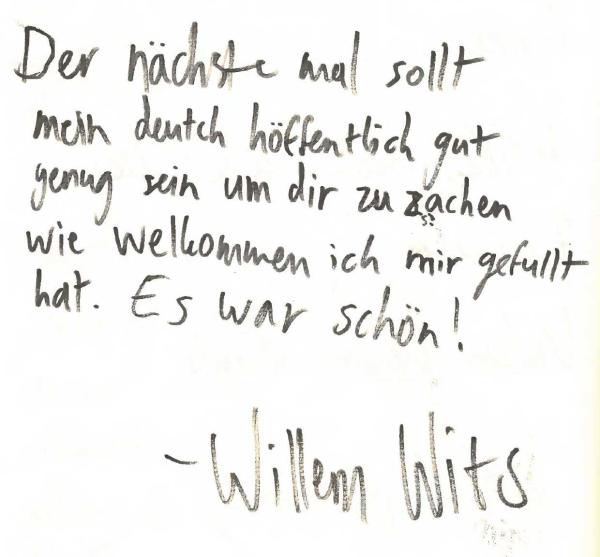 Der nächste mal sollt
mein deutch höffentlich gut
genug sein um dir zu zachen
wie welkommen ich mir gefullt
hat. Es war schön!
- Willem Wits